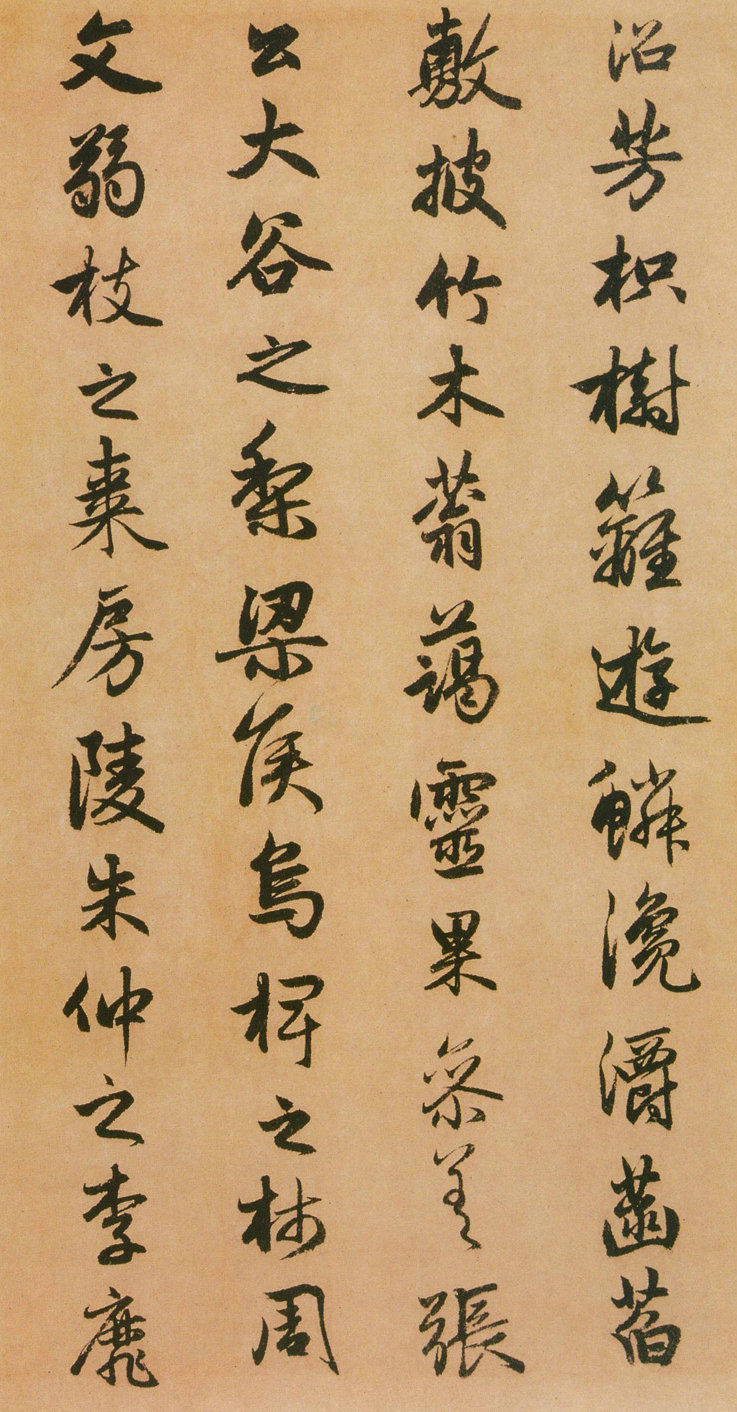 沼芳枳樹籬遊鱗瀺灂菡萏
敷披竹木蓊藹靈果参差張
公大谷之梨梁侯烏椑之柿周
文弱枝之棗房陵朱仲之李靡